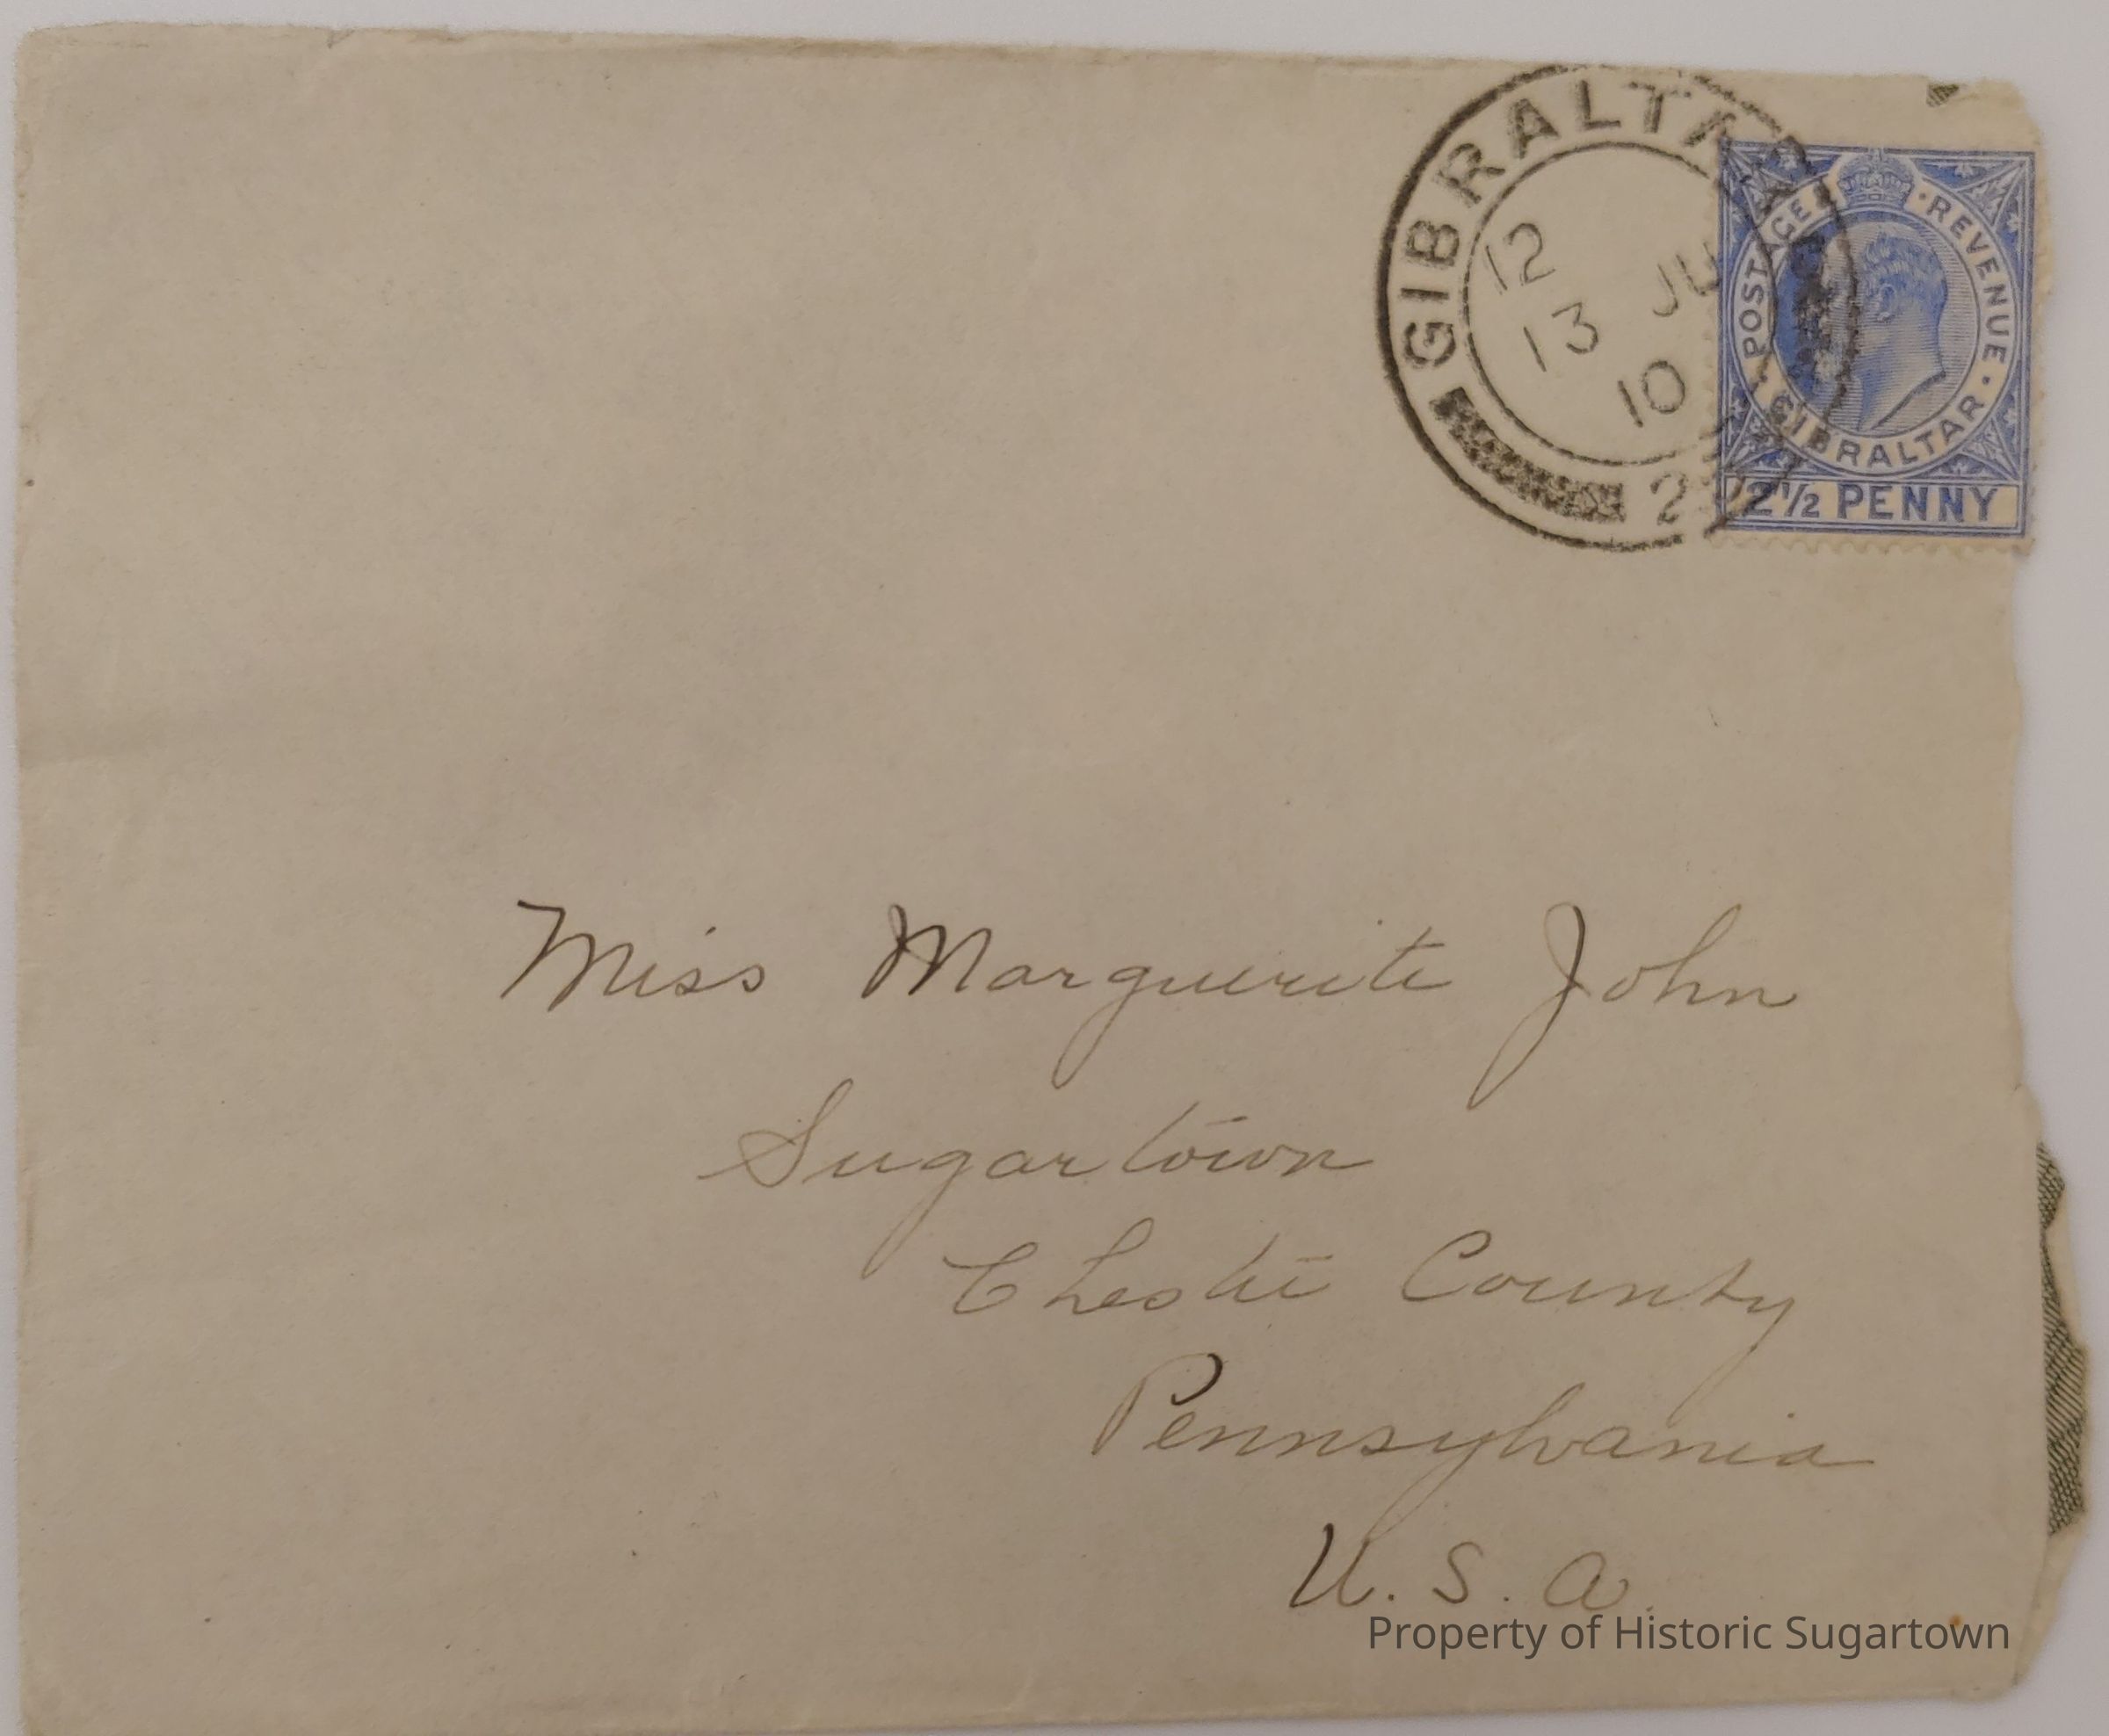 GIBRALTAR
12
JU
13
10
2
POSTAGE · REVENUE ·
GIBRALTAR
2½ PENNY
Miss Marguerite John
Sugartown
Cheste County
Pennsylvania
U. S. A.
Property of Historic Sugartown